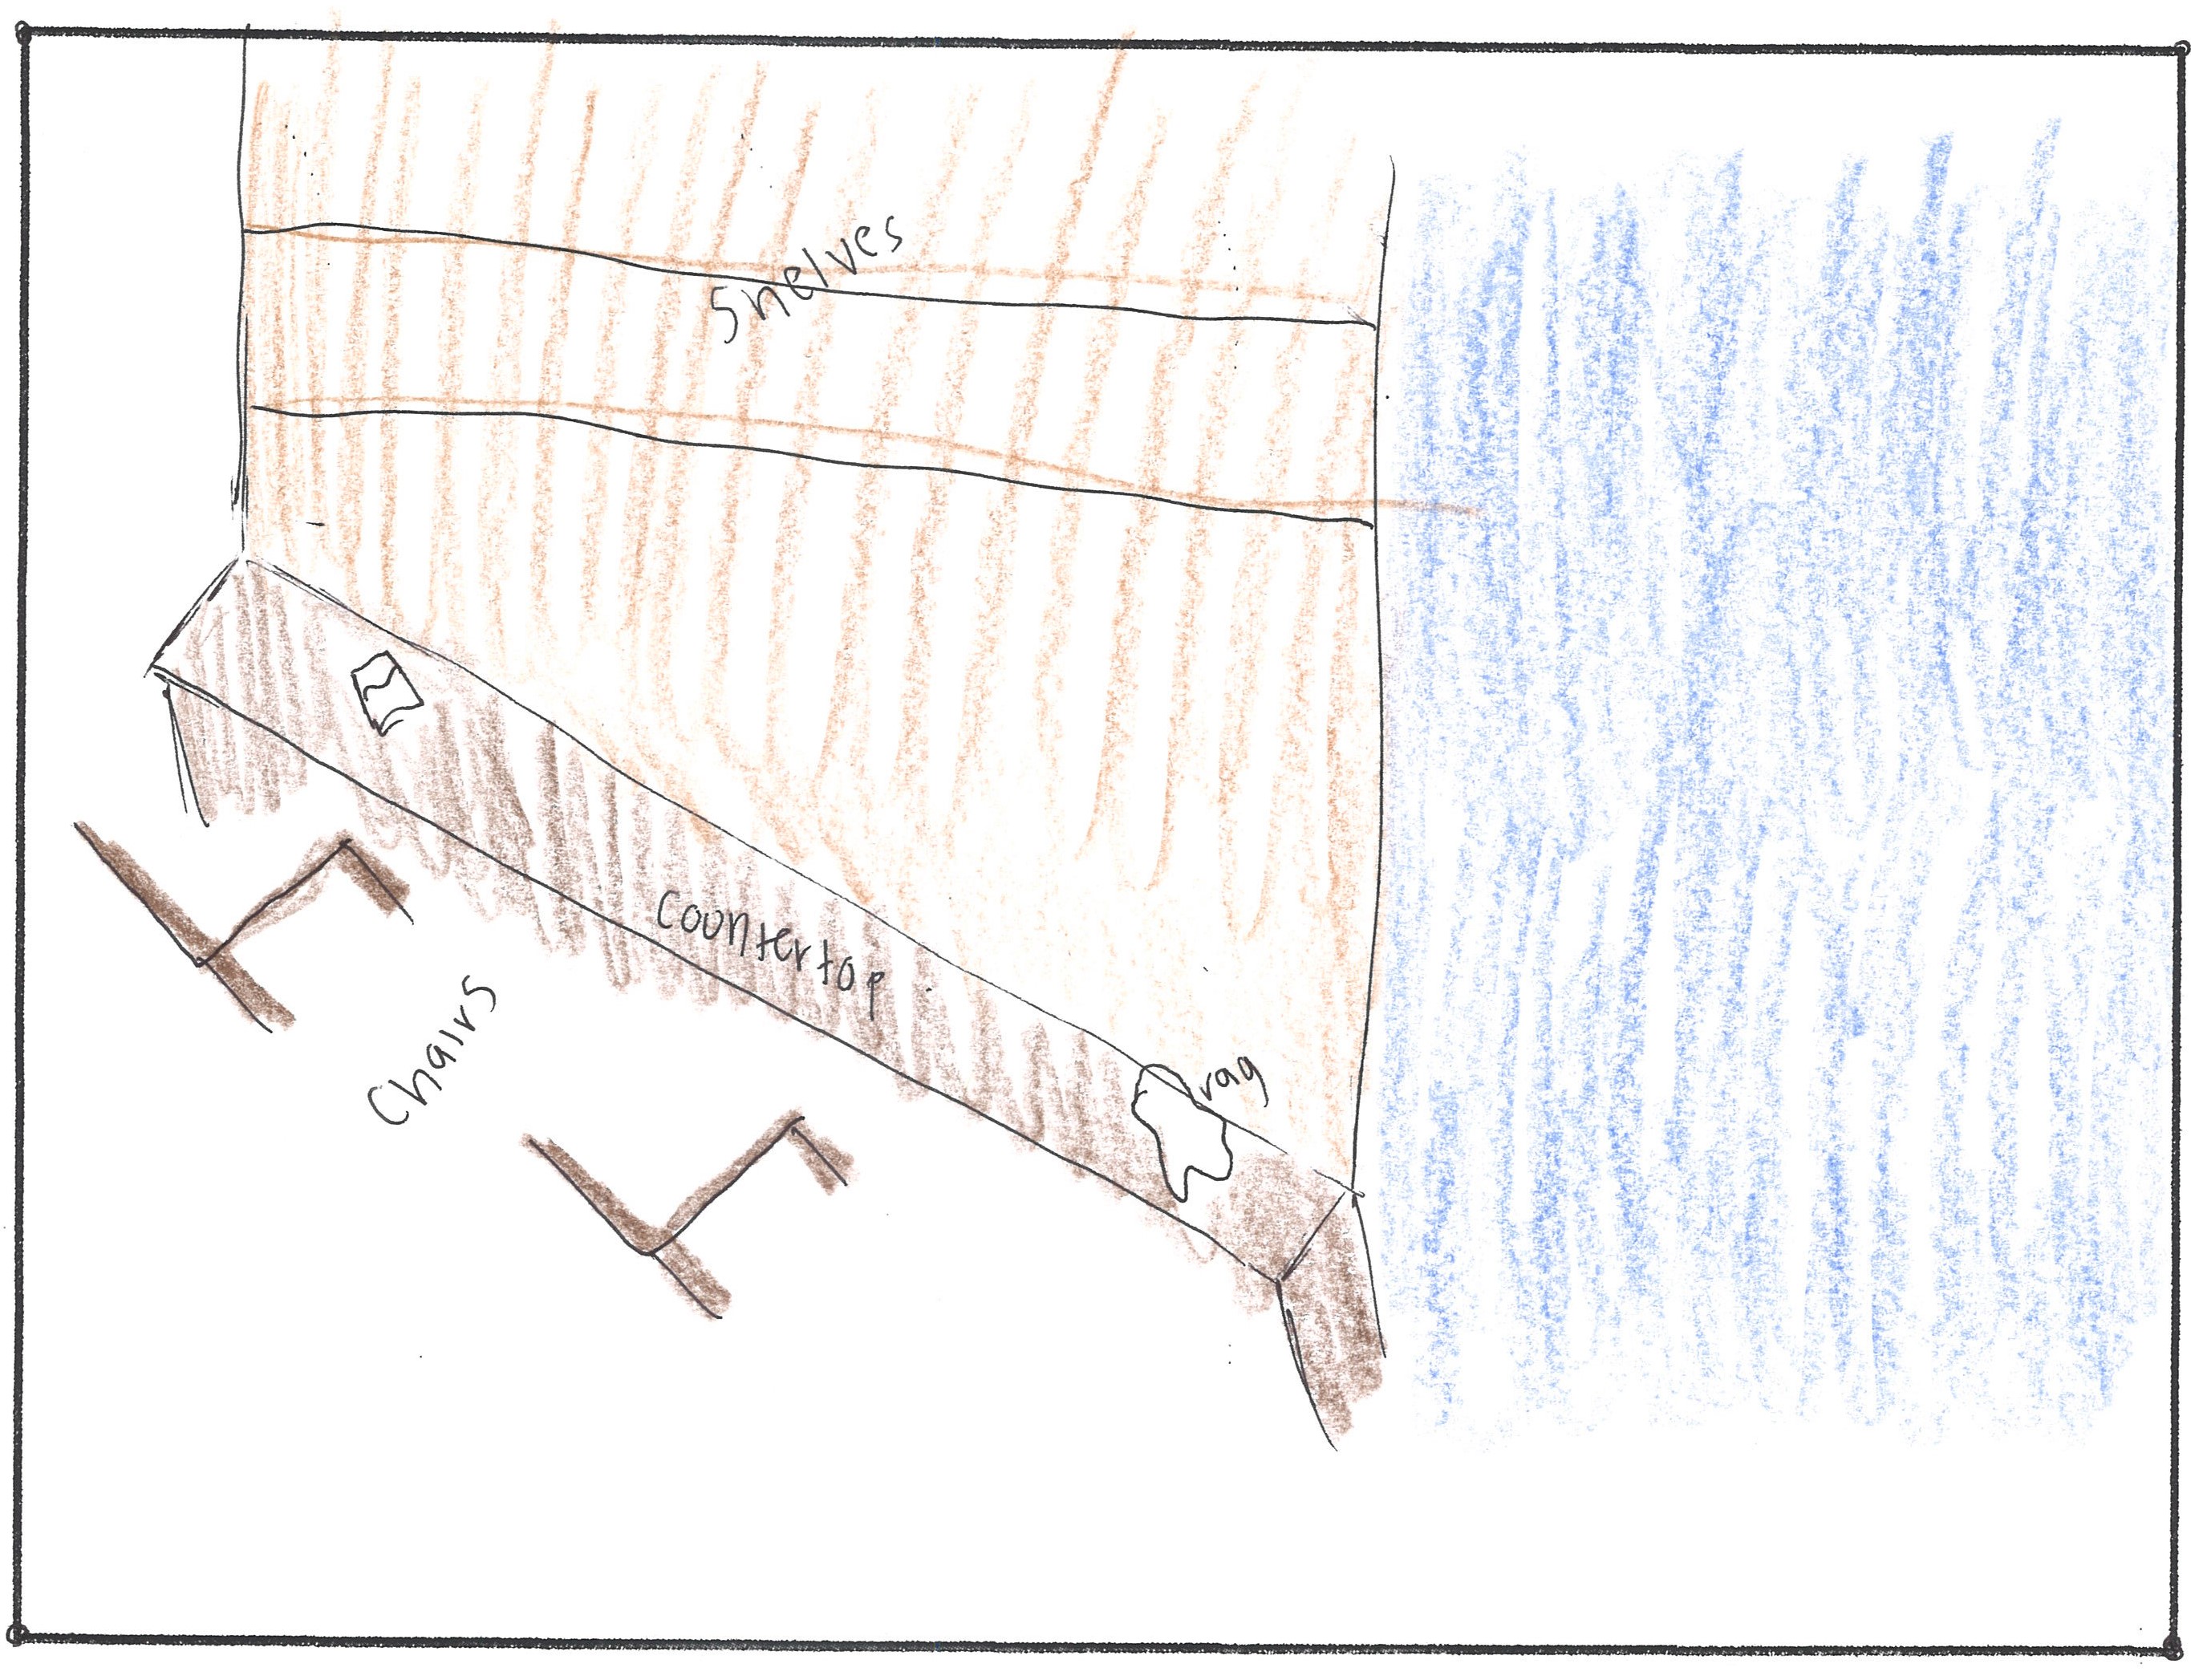 Shelves
Countertop
Chairs
rag